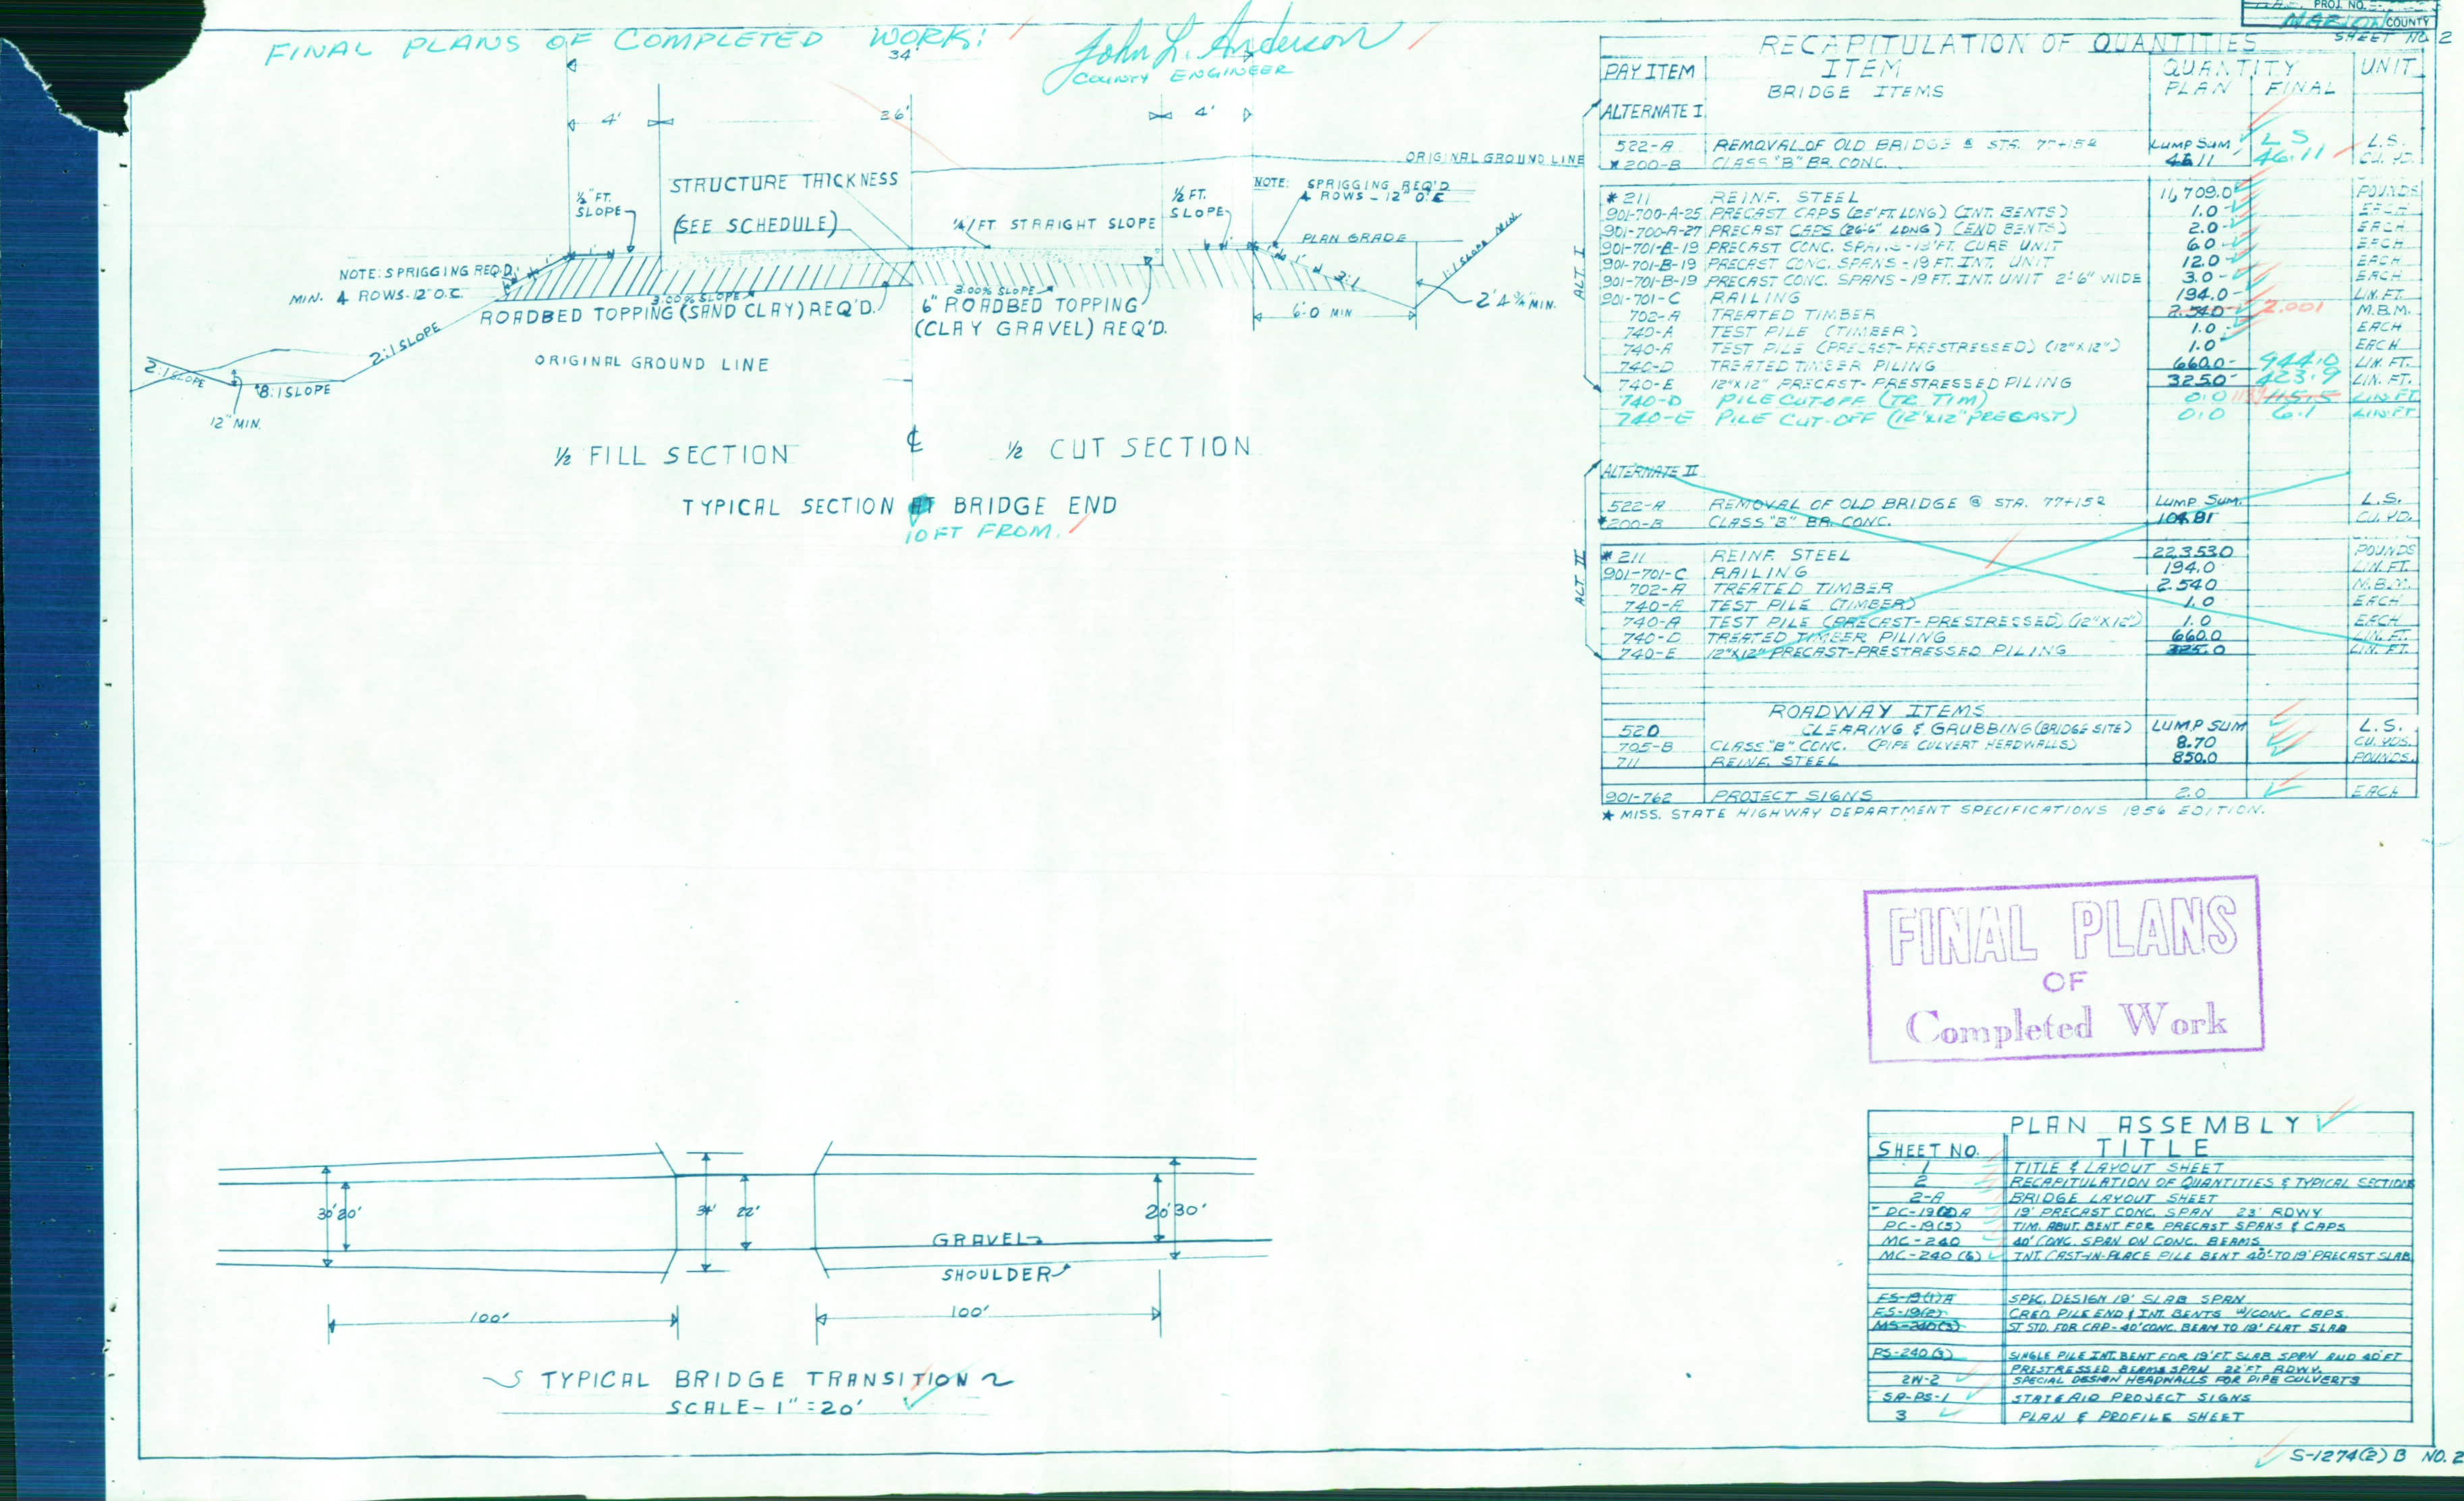 PROJ. NO.
MARION COUNTY
SHEET NO. 2
FINAL PLANS OF COMPLETED WORK:
John L. Anderson
COUNTY ENGINEER
34'
4'
26'
4'
ORIGINAL GROUND LINE
STRUCTURE THICKNESS
(SEE SCHEDULE)
½" FT. SLOPE
¼"/FT STRAIGHT SLOPE
½ FT. SLOPE
NOTE: SPRIGGING REQ'D
4 ROWS - 12" O.C
PLAN GRADE
1:1 SLOPE MIN
NOTE: SPRIGGING REQ'D.
MIN. 4 ROWS-12" O.C.
3.00% SLOPE
3.00% SLOPE
3:1
2' 4¾" MIN.
6'-0 MIN
ROADBED TOPPING (SAND CLAY) REQ'D.
6" ROADBED TOPPING
(CLAY GRAVEL) REQ'D.
2:1 SLOPE
ORIGINAL GROUND LINE
2:1 SLOPE
8:1 SLOPE
12" MIN.
½ FILL SECTION
½ CUT SECTION
TYPICAL SECTION AT BRIDGE END
10 FT FROM.
RECAPITULATION OF QUANTITIES
PAY ITEM ITEM QUANTITY UNIT
BRIDGE ITEMS PLAN FINAL
ALTERNATE I
522-A REMOVAL OF OLD BRIDGE @ STA. 77+152 LUMP SUM L S L.S.
*200-B CLASS "B" BR. CONC. 46.11 46.11 CU. YD.
ALT. I
*211 REINF. STEEL 11,709.0 POUNDS
901-700-A-25 PRECAST CAPS (25' FT. LONG) (INT. BENTS) 1.0 EACH
901-700-A-27 PRECAST CAPS (26'6" LONG) (END BENTS) 2.0 EACH
901-701-B-19 PRECAST CONC. SPANS - 19' FT. CURB UNIT 6.0 EACH
901-701-B-19 PRECAST CONC. SPANS - 19 FT. INT. UNIT 12.0 EACH
901-701-B-19 PRECAST CONC. SPANS - 19 FT. INT. UNIT 2'-6" WIDE 3.0 EACH
901-701-C RAILING 194.0 LIN. FT.
702-A TREATED TIMBER 2.540 2.001 M.B.M.
740-A TEST PILE (TIMBER) 1.0 EACH
740-A TEST PILE (PRECAST-PRESTRESSED) (12"X12") 1.0 EACH
740-D TREATED TIMBER PILING 660.0 944.0 LIN. FT.
740-E 12"X12" PRECAST-PRESTRESSED PILING 325.0 423.9 LIN. FT.
740-D PILE CUT-OFF (TR. TIM) 0.0 115.5 LIN FT
740-E PILE CUT-OFF (12"X12" PRECAST) 0.0 6.1 LIN FT
ALTERNATE II
522-A REMOVAL OF OLD BRIDGE @ STA. 77+152 LUMP SUM. L.S.
*200-B CLASS "B" BR. CONC. 104.81 CU. YD.
ALT II
*211 REINF. STEEL 22,353.0 POUNDS
901-701-C RAILING 194.0 LIN. FT.
702-A TREATED TIMBER 2.540 M.B.M.
740-A TEST PILE (TIMBER) 1.0 EACH
740-A TEST PILE (PRECAST-PRESTRESSED) (12"X12") 1.0 EACH
740-D TREATED TIMBER PILING 660.0 LIN. FT.
740-E 12"X12" PRECAST-PRESTRESSED PILING 325.0 LIN. FT.
ROADWAY ITEMS
520 CLEARING & GRUBBING (BRIDGE SITE) LUMP SUM L.S.
705-B CLASS "B" CONC. (PIPE CULVERT HEADWALLS) 8.70 CU. YDS.
711 REINF. STEEL 850.0 POUNDS.
901-762 PROJECT SIGNS 2.0 EACH
* MISS. STATE HIGHWAY DEPARTMENT SPECIFICATIONS 1956 EDITION.
FINAL PLANS
OF
Completed Work
PLAN ASSEMBLY
SHEET NO. TITLE
1 TITLE & LAYOUT SHEET
2 RECAPITULATION OF QUANTITIES & TYPICAL SECTIONS
2-A BRIDGE LAYOUT SHEET
PC-19(2)A 19' PRECAST CONC. SPAN 23' RDWY
PC-19(5) TIM. ABUT. BENT FOR PRECAST SPANS & CAPS
MC-240 40' CONC. SPAN ON CONC. BEAMS
MC-240(6) INT. CAST-IN-PLACE PILE BENT 40'-TO 19' PRECAST SLAB
FS-19(1)A SPEC. DESIGN 19' SLAB SPAN
FS-19(2) CREO. PILE END & INT. BENTS W/CONC. CAPS.
MS-240(3) ST STD. FOR CAP-40' CONC. BEAM TO 19' FLAT SLAB
PS-240(3) SINGLE PILE INT. BENT FOR 19' FT. SLAB SPAN AND 40 FT
PRESTRESSED BEAMS SPAN 22' FT RDWY.
2W-2 SPECIAL DESIGN HEADWALLS FOR PIPE CULVERTS
SA-PS-1 STATE AID PROJECT SIGNS
3 PLAN & PROFILE SHEET
30' 20'
34' 22'
20' 30'
GRAVEL
SHOULDER
100'
100'
TYPICAL BRIDGE TRANSITION
SCALE - 1" = 20'
S-1274(2) B NO. 2